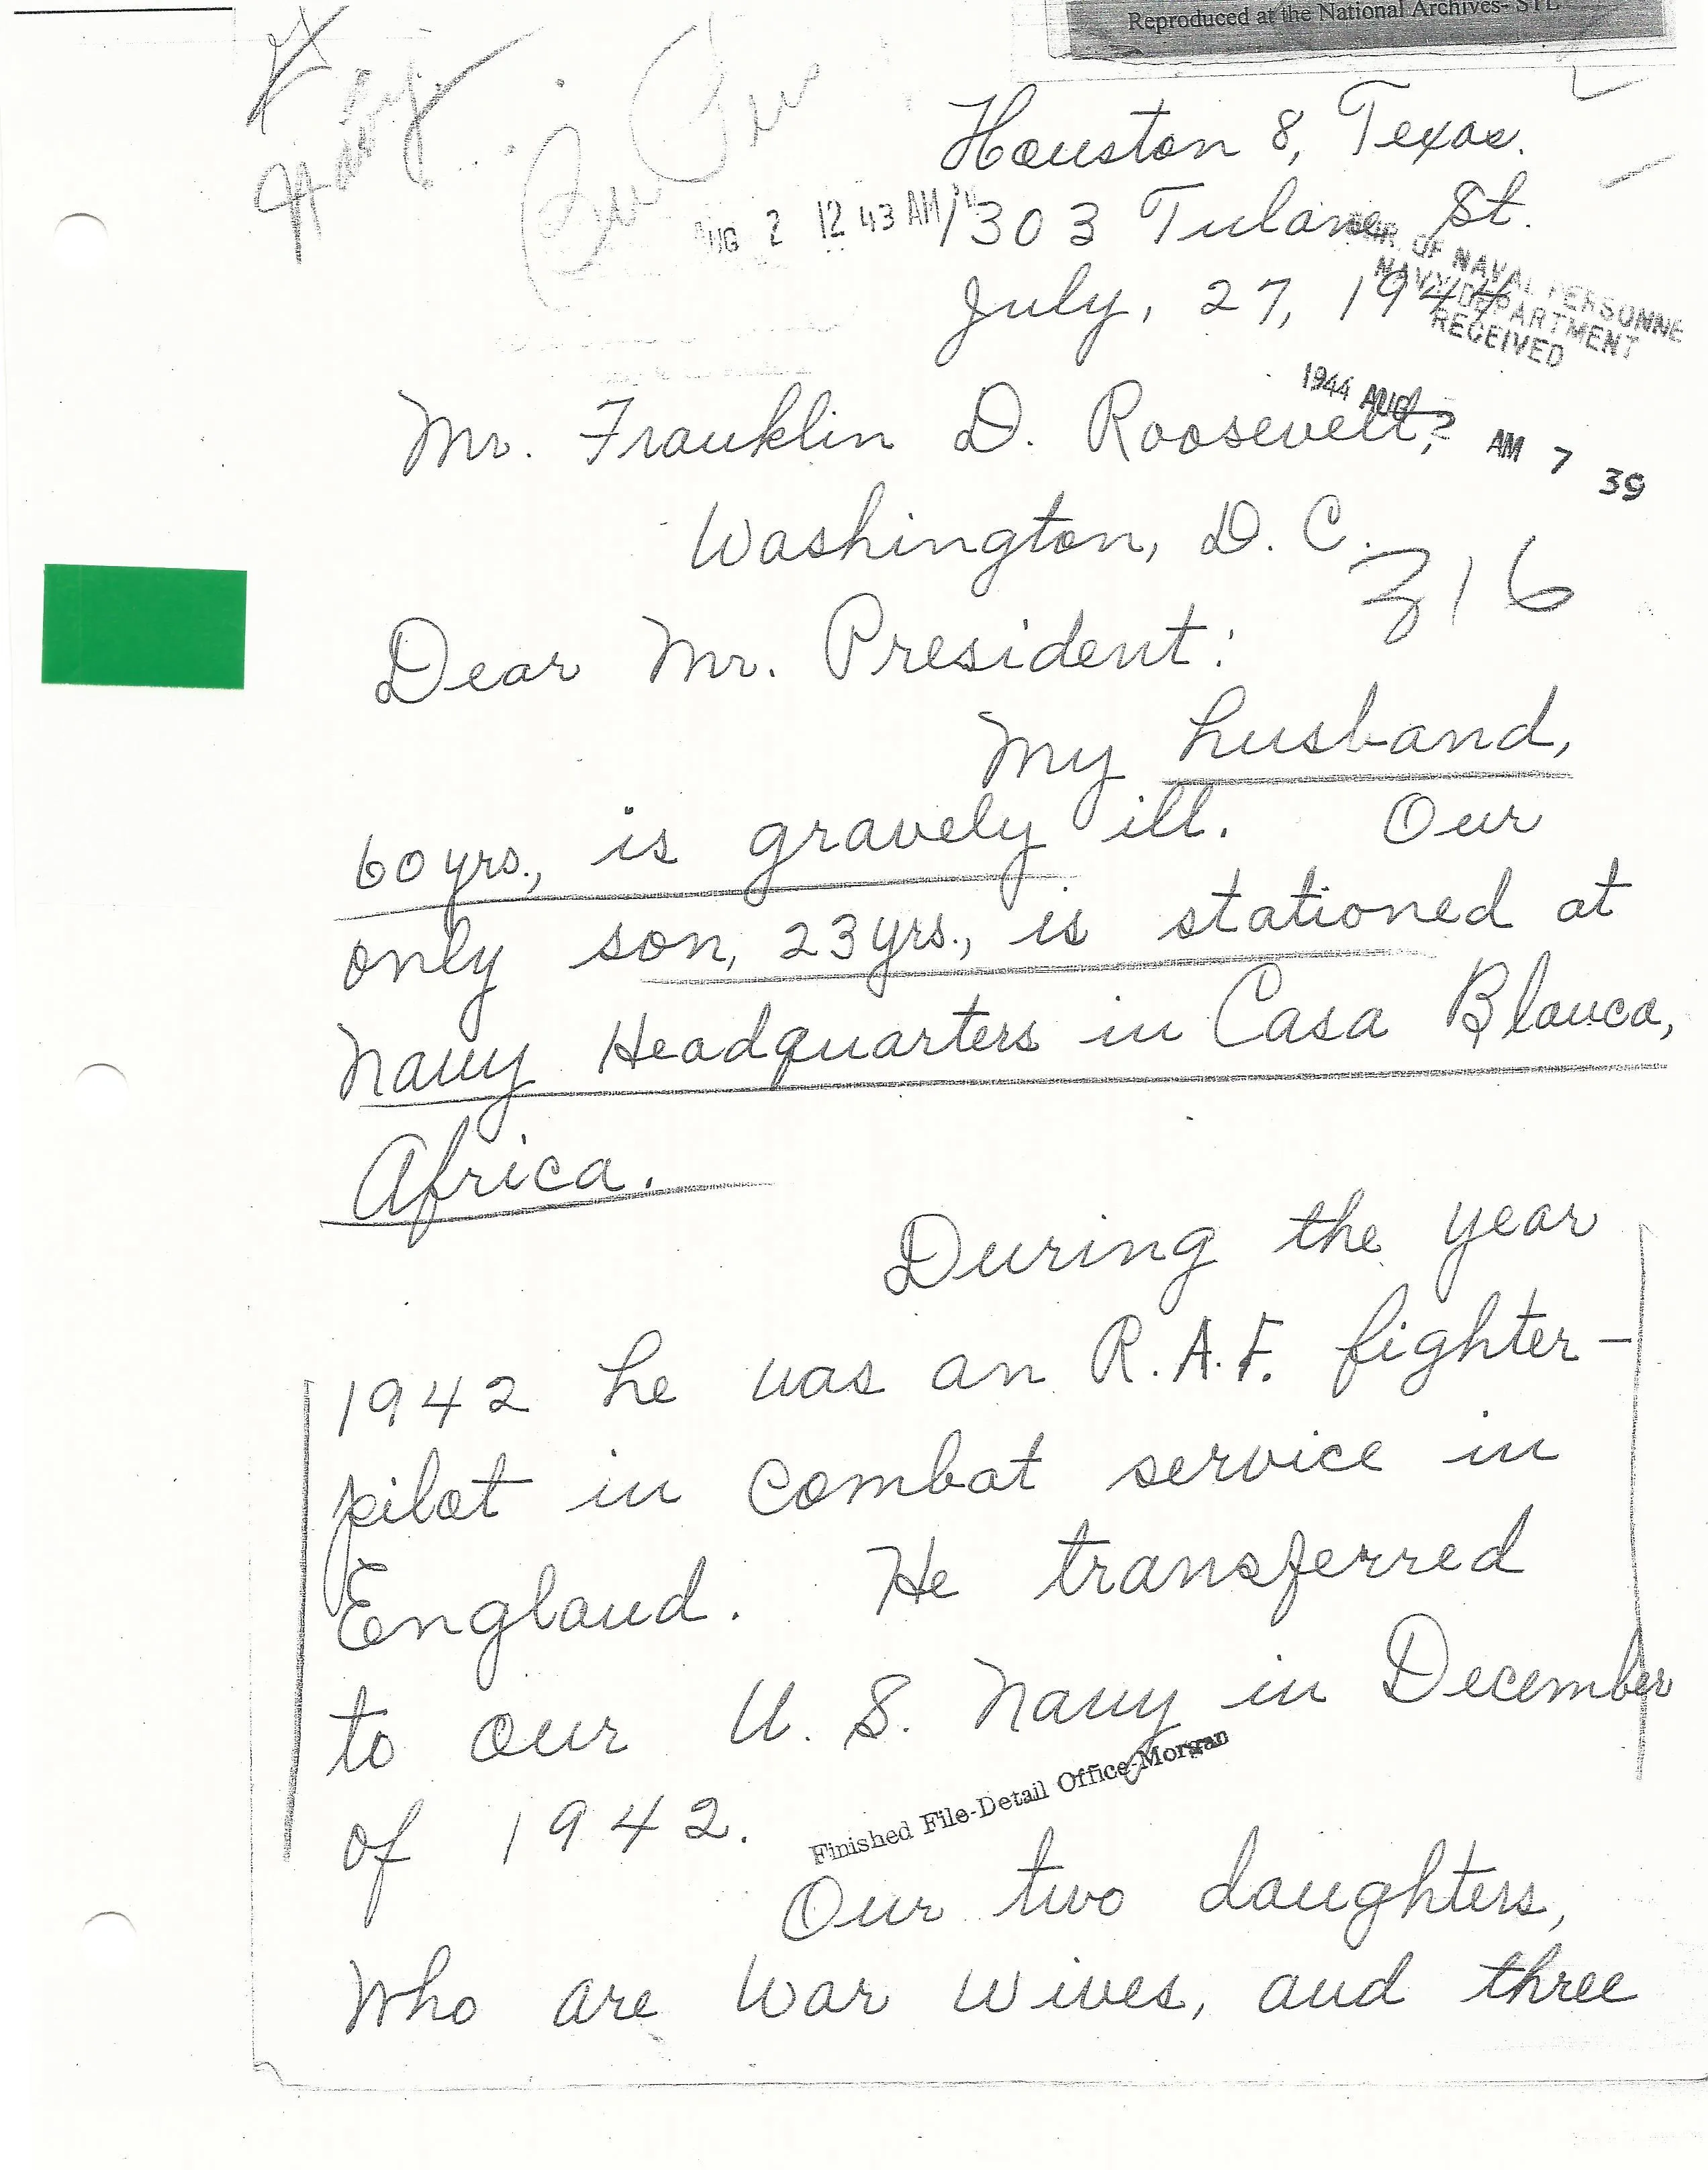 Reproduced at the National Archives- STL
Houston 8, Texas.
AUG 2 12 43 AM
1303 Tulane St.
OF NAVAL PERSONNE
NAVY DEPARTMENT
RECEIVED
July, 27, 1944
1944 AUG 2 AM 7 39
Mr. Franklin D. Roosevelt,
Washington, D. C.
316
Dear Mr. President:
My husband,
60 yrs., is gravely ill. Our
only son, 23 yrs., is stationed at
Navy Headquarters in Casa Blanca,
Africa.
During the year
1942 he was an R.A.F. fighter-
pilot in combat service in
England. He transferred
to our U. S. Navy in December
of 1942.
Finished File-Detail Office-Morgan
Our two daughters,
who are war wives, and three